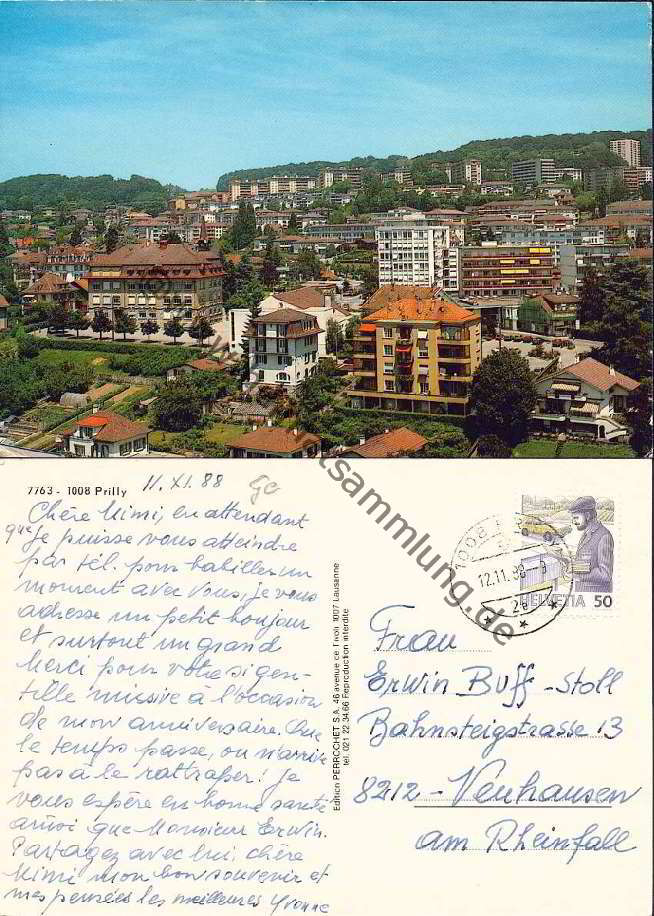 7763 - 1008 Prilly
11. XI. 88
Chère Mimi, en attendant
que je puisse vous atteindre
par tél. pour babiller un
moment avec vous, je vous
adresse un petit bonjour
et surtout un grand
Merci pour votre si gen-
tille missive à l'occasion
de mon anniversaire. Que
le temps passe, on n'arrive
pas à le rattraper! Je
vous espère en bonne santé
ainsi que Monsieur Erwin.
Partagez avec lui, chère
Mimi mon bon souvenir et
mes pensées les meilleures Yvonne
Edition PERROCHET S.A. 46 avenue de Tivoli 1007 Lausanne
tél. 021 22 34.66 Reproduction interdite
1008
12.11.88-9
HELVETIA 50
Frau
Erwin Buff-Stoll
Bahnsteigstrasse 13
8212-Neuhausen
am Rheinfall
tsammlung.de